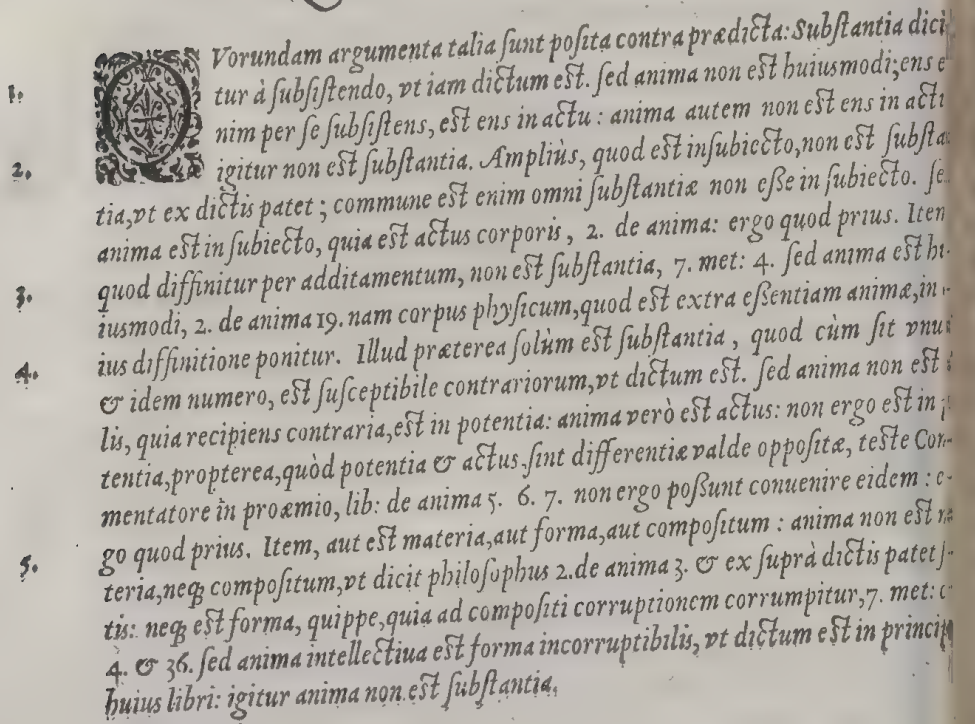 QVorundam argumenta talia ſunt poſita contra prædicta: Subſtantia dici-
1. tur à ſubſiſtendo, vt iam dictum eſt. ſed anima non eſt huiusmodi; ens e
nim per ſe ſubſiſtens, eſt ens in actu: anima autem non eſt ens in
2. igitur non eſt ſubſtantia. Ampliùs, quod eſt inſubiecto, non eſt
tia, vt ex dictis patet; commune est enim omni ſubſtantiæ non eße in ſubiecto.
anima eſt in ſubiecto, quia eſt actus corporis, 2. de anima: ergo quod prius.
3. quod diffinitur per additamentum, non eſt ſubſtantia, 7. met: 4. ſed anima eſt
iusmodi, 2. de anima 19. nam corpus phyſicum, quod eſt extra eßentiam animæ, in
4. ius diffinitione ponitur. Illud præterea ſolùm eſt ſubſtantia, quod cùm ſit
& idem numero, eſt ſuſceptibile contrariorum, vt dictum eſt. ſed anima non eſt
lis, quia recipiens contraria, eſt in potentia: anima verò eſt actus: non ergo eſt in
tentia, propterea, quòd potentia & actus ſint differentiæ valde oppoſitæ, teſte Com-
mentatore in proæmio, lib: de anima 5. 6. 7. non ergo poßunt conuenire eidem: e-
5. go quod prius. Item, aut eſt materia, aut forma, aut compoſitum: anima non eſt
teria, neq; compoſitum, vt dicit philoſophus 2. de anima 3. & ex ſuprà dictis patet
tis: neq; eſt forma, quippe, quia ad compoſiti corruptionem corrumpitur, 7. met:
4. & 36. ſed anima intellectiua eſt forma incorruptibilis, vt dictum eſt in
huius libri: igitur anima non eſt ſubſtantia.